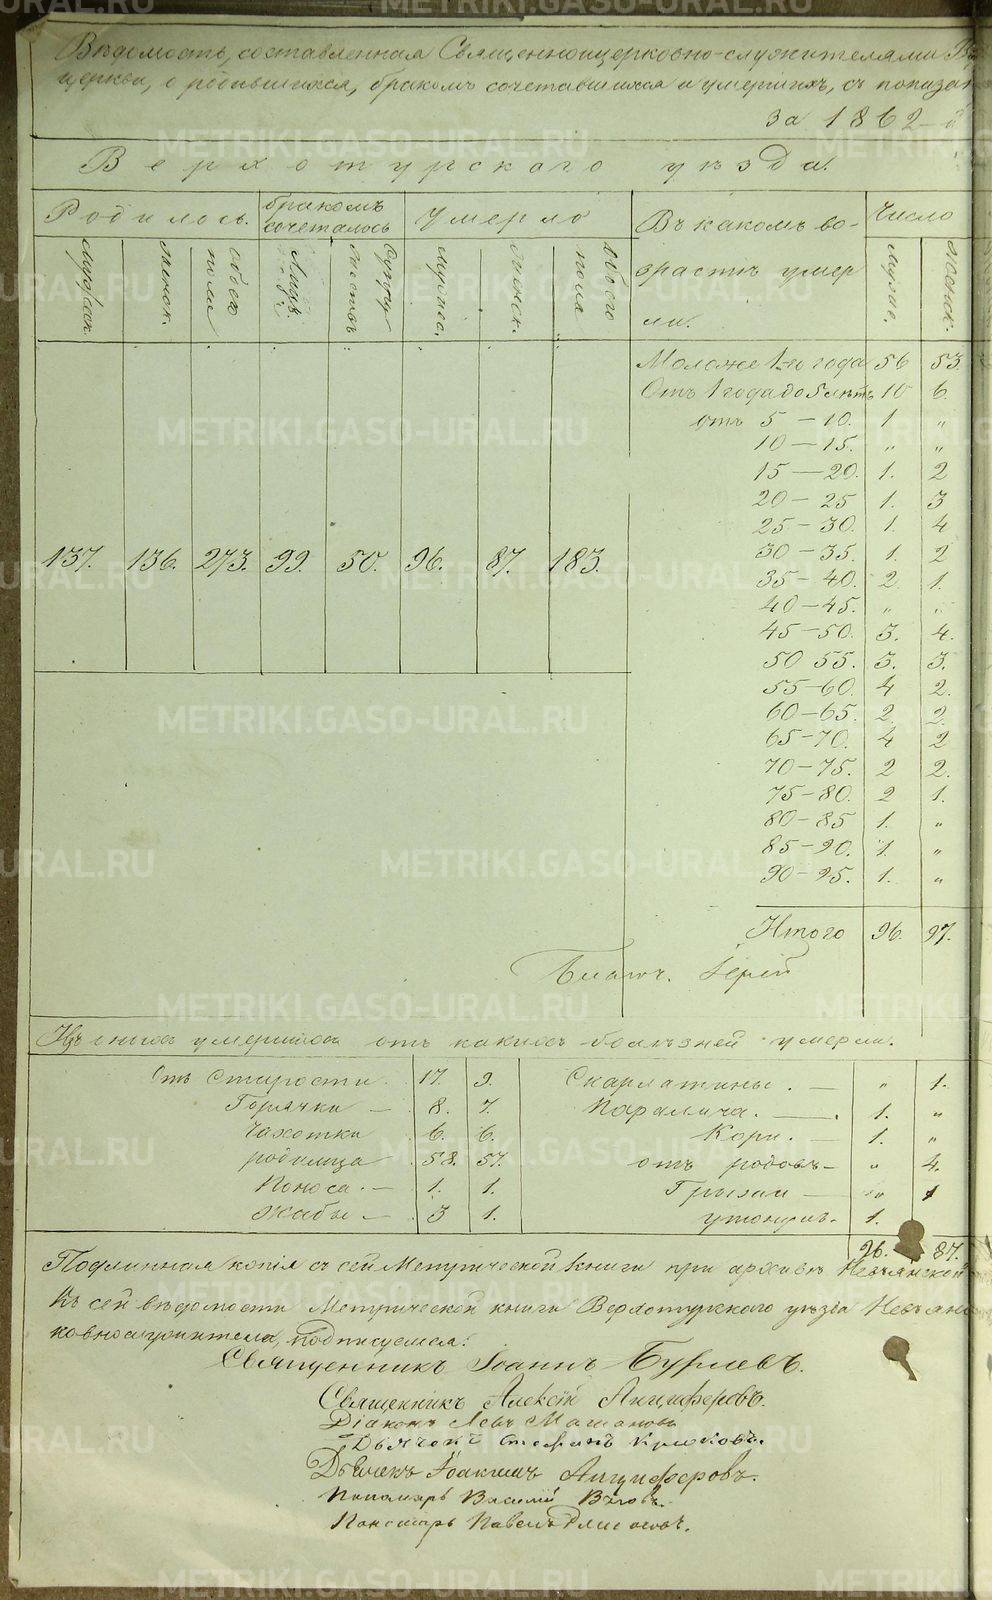 Вѣдомость, составленная Священноцерковно-служителями
церкви, о родившихся, бракомъ сочетавшихся и умершихъ, съ показан
за 1862-й
Верхотурскаго уѣзда.
Родилось. бракомъ сочеталось Умерло Въ какомъ возрастѣ умерли. Число
мужеск. женск. обоего пола Лицъ. Супружествъ мужес. женск. Обоего пола мужес. женск.
137. 136. 273. 99. 50. 96. 87. 183.
Моложе 1-го года 56 53.
Отъ 1 года до 5 лѣтъ 10 6.
отъ 5 – 10. 1 „
10 – 15. „ „
15 – 20. 1. 2
20 – 25 1. 3
25 – 30. 1. 4
30 – 35. 1. 2
35 – 40. 2. 1.
40 – 45. „ „
45 – 50. 3. 4.
50 55. 3. 3.
55 – 60. 4 2.
60 – 65. 2. 2.
65 – 70. 4 2
70 – 75. 2 2.
75 – 80. 2 1.
80 – 85 1. „
85 – 90. 1. „
90 – 95. 1. „
Итого 96. 97.
Благоч. Іерей
Изъ числа умершихъ отъ какихъ болѣзней умерли.
Отъ Старости 17. 9.
Горячки – 8. 7.
Чахотки 6. 6.
родимца 58. 57.
Поноса. – 1. 1.
Жабы – 3 1.
Скарлатины. – „ 1.
Паралича. – 1. „
Кори. – 1. „
отъ родовъ – „ 4.
Грыжи – „ 1
утонулъ. 1.
96. 87.
Подлинная копія съ сей Метрической книги при архивѣ Невьянской
Къ сей вѣдомости Метрической книги Верхотурскаго уѣзда Невьянс
ковнослужители, подписуемся:
Священникъ Іоаннъ Бурлевъ.
Священникъ Алексій Анциферовъ.
Діаконъ Левъ
Дьячекъ Стефанъ Крюковъ.
Дьячекъ Іоакимъ Анциферовъ.
Пономарь Василій
Пономарь Павелъ
METRIKI.GASO-URAL.RU